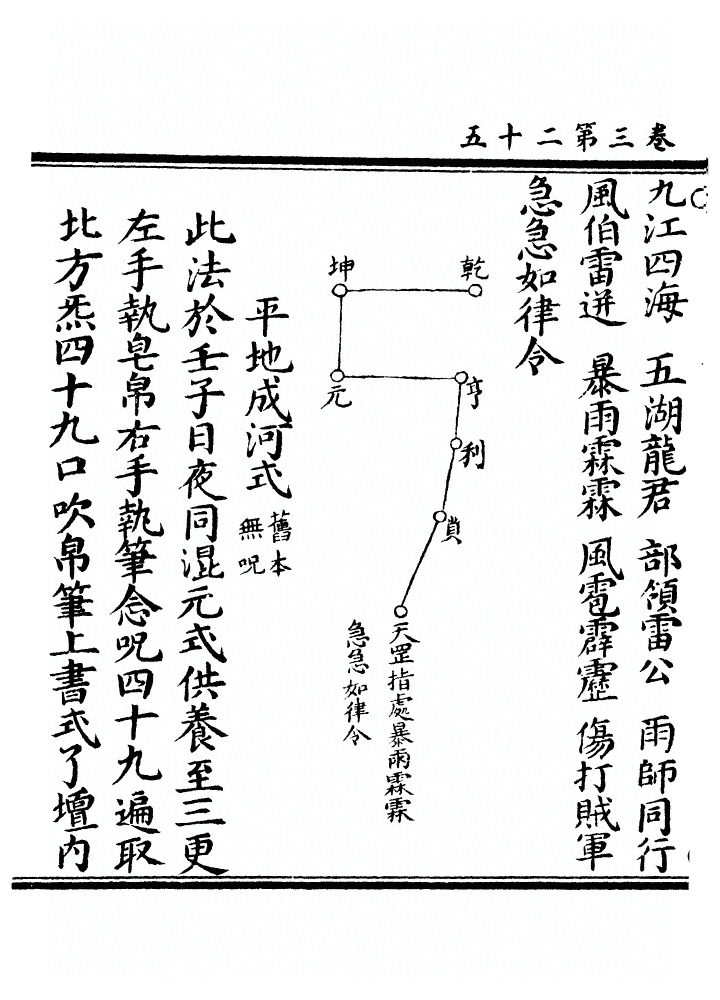 卷三第二十五
九江四海　五湖龍君　部領雷公　雨師同行
風伯雷迸　暴雨霖霖　風雹霹靂　傷打賊軍
急急如律令
乾
坤
元
亨
利
貞
天罡指處暴雨霖霖
急急如律令
平地成河式 舊本無呪
此法於壬子日夜同混元式供養至三更
左手執皂帛右手執筆念呪四十九遍取
北方炁四十九口吹帛筆上書式了壇内